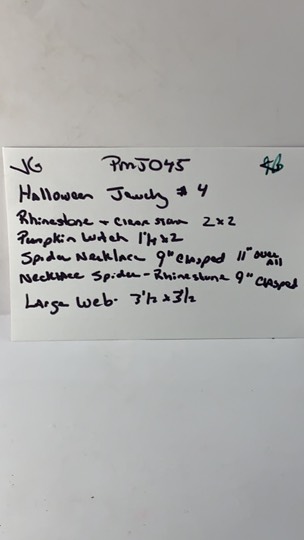 VG PMJ045
Halloween Jewely # 4
Rhinestone + Clear stone 2x2
Pumpkin Witch 1 1/4 x 2
Spider Necklace 9" Clasped 11" over All
Necklace Spider - Rhinestone 9" Clasped
Large Web - 3 1/2 x 3 1/2